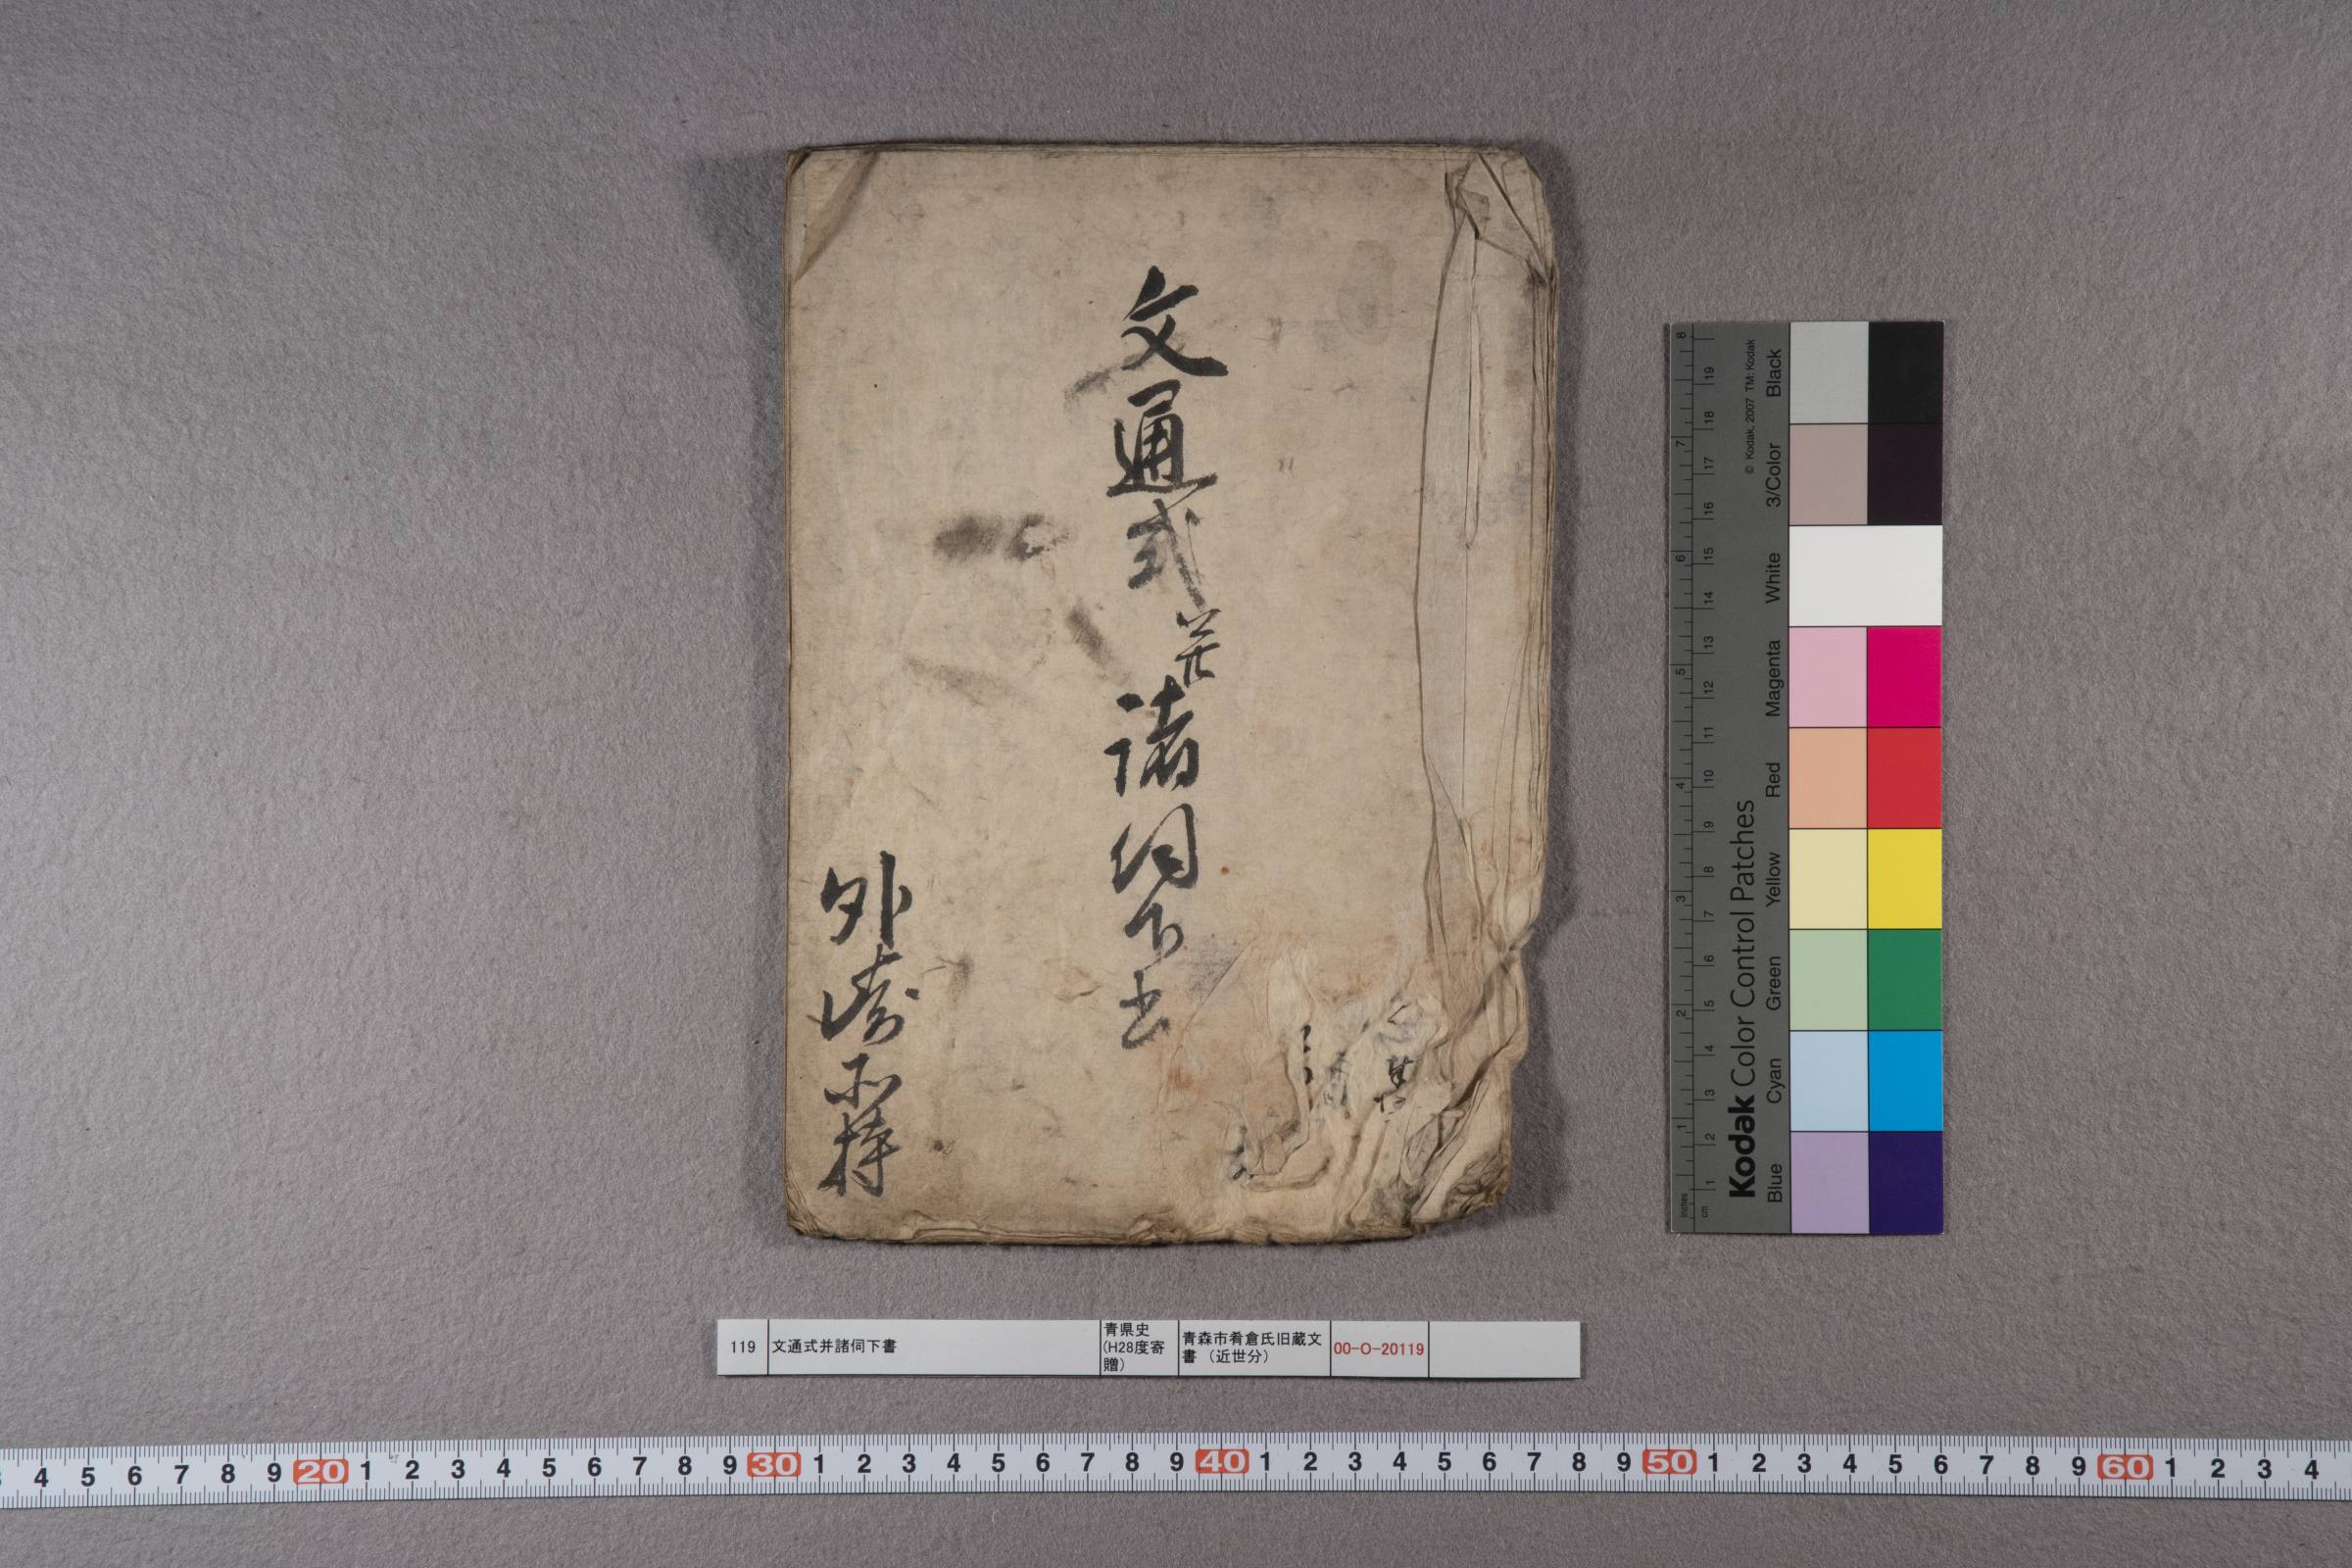 文通式并諸伺下書
外崎所持
119 文通式并諸伺下書 青県史(H28度寄贈) 青森市肴倉氏旧蔵文書（近世分） 00-O-20119
Kodak Color Control Patches
© Kodak, 2007 TM: Kodak
Black
3/Color
White
Magenta
Red
Yellow
Green
Cyan
Blue
8 7 6 5 4 3 2 1 inches
19 18 17 16 15 14 13 12 11 10 9 8 7 6 5 4 3 2 1 cm
3 4 5 6 7 8 9 20 1 2 3 4 5 6 7 8 9 30 1 2 3 4 5 6 7 8 9 40 1 2 3 4 5 6 7 8 9 50 1 2 3 4 5 6 7 8 9 60 1 2 3 4